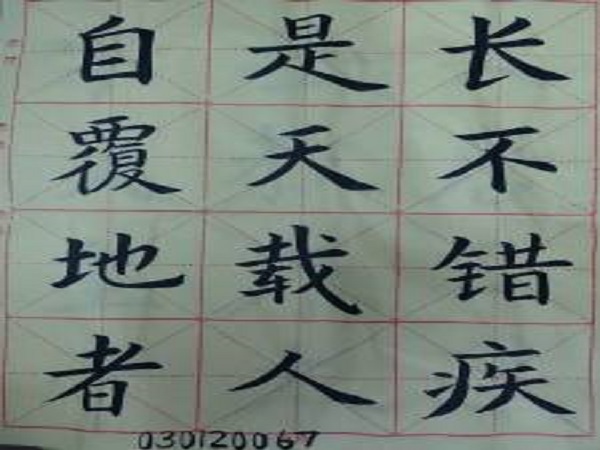 长不错疾
是天载人
自覆地者
030120067